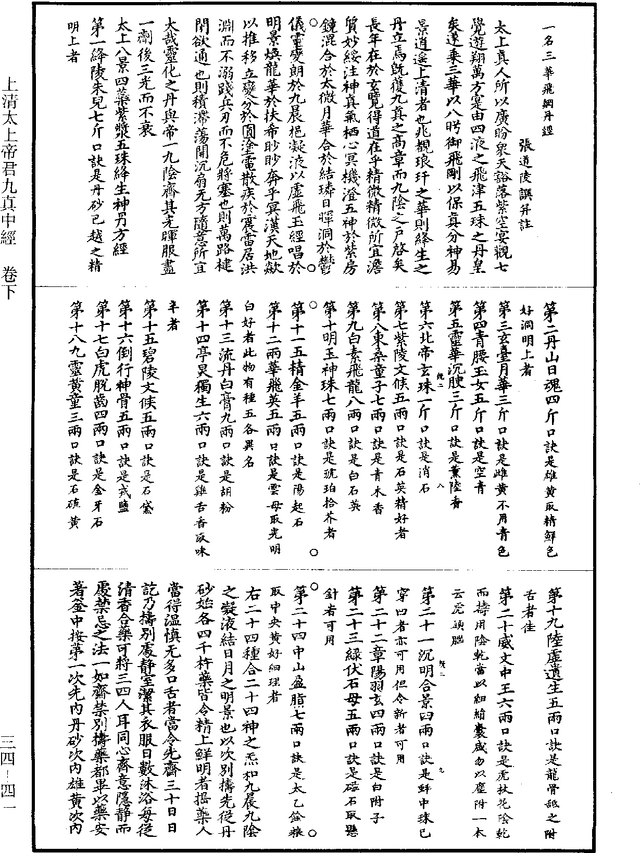 一名三華飛綱丹經
張道陵譔并註
太上真人所以廣盼衆天豁落紫空宴觀七
覺遊翔萬方寔由四液之飛津五珠之丹皇
矣遂乘三華以八眄御飛剛以保真分神易
景逍遥上清者也兆觀琅玕之華則絳生之
丹立焉旣獲九真之高章而九陰之户啓矣
長年在於玄覽得道在乎精微精微所宜澹
質妙綏注神真氣栖心冥機澄五神於紫房
鏡混合於太微月華合於結璘日暉洞於鬱
儀靈變朗於九晨挹凝液以虛飛玉經唱於
明景煥龍華於扶希眇眇奔乎冥漢天地歘
以推移立變分於圓塗雷散疾於震雷居洪
淵而不溺踐兵刃而不危將塞也則萬路揵
閇欲通也則積滯蕩開沉扃无方隨意所宜
大哉靈化之丹與帝一九陰齊其光暉服盡
一劑後三光而不衰
太上八景四蘂紫漿五珠絳生神丹方經
第一絳陵朱兒七斤口訣是丹砂巴越之精
明上者
第二丹山日魂四斤口訣是雄黄取精鮮色
好洞明上者
第三玄臺月華三斤口訣是雌黄不用青色
第四青腰玉女五斤口訣是空青
第五靈華沉腴三斤口訣是薰陸香
第六北帝玄珠一斤口訣是消石
第七紫陵文侯五兩口訣是石英精好者
第八東桑童子七兩口訣是青木香
第九白素飛龍八兩口訣是白石英
第十明玉神珠七兩口訣是琥珀拾芥者
第十一五精金羊五兩口訣是陽起石
第十二兩華飛英五兩口訣是雲母取光明
白好者此物有種五各異名
第十三流丹白膏九兩口訣是胡粉
第十四亭炅獨生六兩口訣是雞舌香取味
辛者
第十五碧陵文侯五兩口訣是石黛
第十六倒行神骨五兩口訣是戎鹽
第十七白虎脫齒四兩口訣是金牙石
第十八九靈黄童三兩口訣是石硫黄
第十九陸虛遺生五兩口訣是龍骨舐之附
舌者佳
第二十威文中王六兩口訣是
而擣用陰乾當以細紺囊盛勿以塵附一本
云虎頭腦
第二十一沉明合景四兩口訣是蚌中珠已
穿曰者亦可用但令新者可用
第二十二章陽羽玄四兩口訣是白附子
第二十三綠伏石母五兩口訣是磁石取懸
針者可用
第二十四中山盈脂七兩口訣是太乙餘糧
取中央黄好細理者
右二十四種合二十四神之炁和九晨九陰
之凝液結日月之明景也以次别擣先從丹
砂始各四千杵藥皆令精上鮮明者擣藥人
當得温慎无多口舌者當令先齋三十日日
訖乃擣别處静室潔其衣服日數沐浴每從
清香合藥可將三四人耳同心齋意隱静而
處禁忌之法一如齋禁别擣藥都畢以藥安
著釜中按第一次先内丹砂次内雄黄次内
上清太上帝君九真中經　卷下
三四－四一